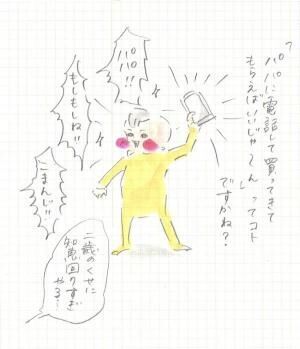 パパに電話して買ってきて
もらえばいいじゃ～んってコト
ですかね？
パパ!!
もしもしね!!
こまんじ!!
二歳のくせに
知恵回りすぎ
やろ…